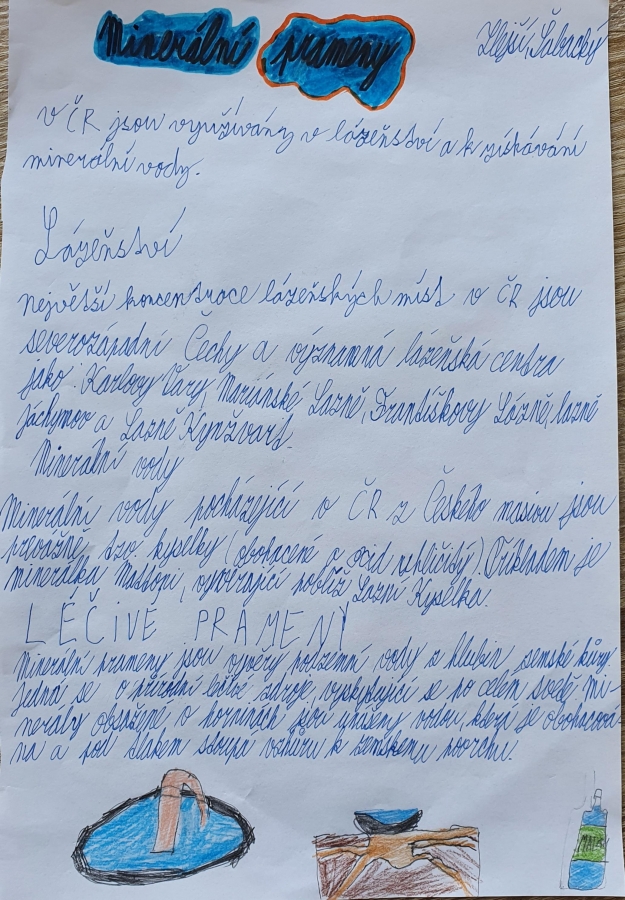 Minerální prameny
Zlejší, Šabacký
V ČR jsou využívány v lázeňství a k získávání
minerální vody.
Lázeňství
Největší koncentrace lázeňských míst v ČR jsou
severozápadní Čechy a významná lázeňská centra
jako: Karlovy Vary, Mariánské Lazně, Františkovy Lázně, lazně
Jáchymov a Lazně Kynžvart.
Minerální vody
Minerální vody pocházející v ČR z Českého masivu jsou
převážně tzv. kyselky (obohacené o oxid uhličitý). Příkladem je
minerálka Mattoni, vyvěrající poblíž Lazní Kyselka.
LÉČIVÉ PRAMENY
Minerální prameny jsou vývěry podzemní vody z hlubin zemské kůry.
Jedná se o přírodní léčivé zdroje vyskytující se po celém světě, mi-
nerály obsažené v horninách jsou unášeny vodou, která je obohacova-
na a pod tlakem stoupa vzhůru k zemskému povrchu.